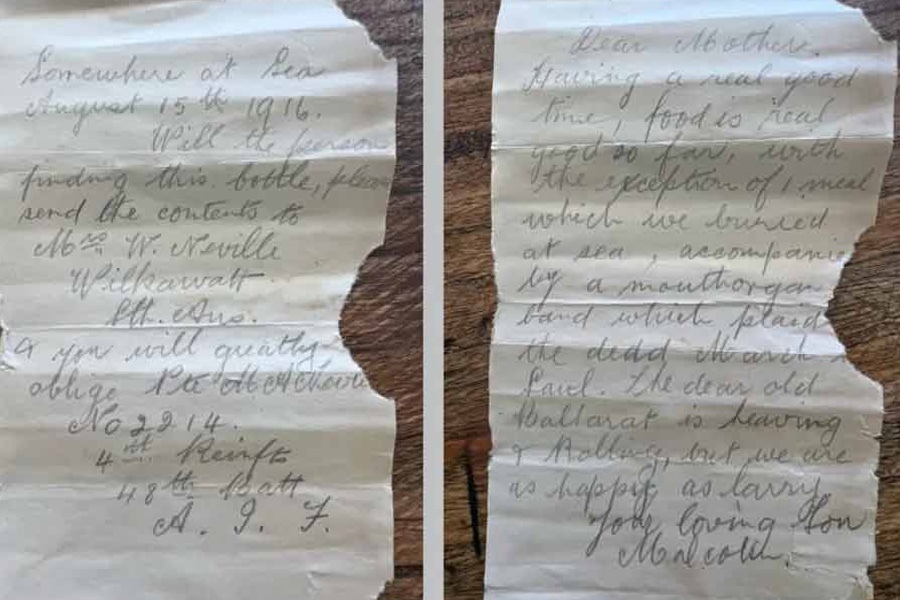 Somewhere at Sea
August 15th 1916.
Will the person
finding this bottle, please
send the contents to
Mrs W. Neville
Wilkawatt
Sth. Aus.
& you will greatly
oblige Pte M A Neville
No 2214.
4th Reinft
48th Batt
A. I. F.
Dear Mother.
Having a real good
time, food is real
good so far, with
the exception of 1 meal
which we burried
at sea, accompanie
by a mouthorgan
band which plaid
the dedd March
Saul. The dear old
Ballarat is heaving
& Rolling, but we are
as happy as larry,
Your loving Son
Malcolm.